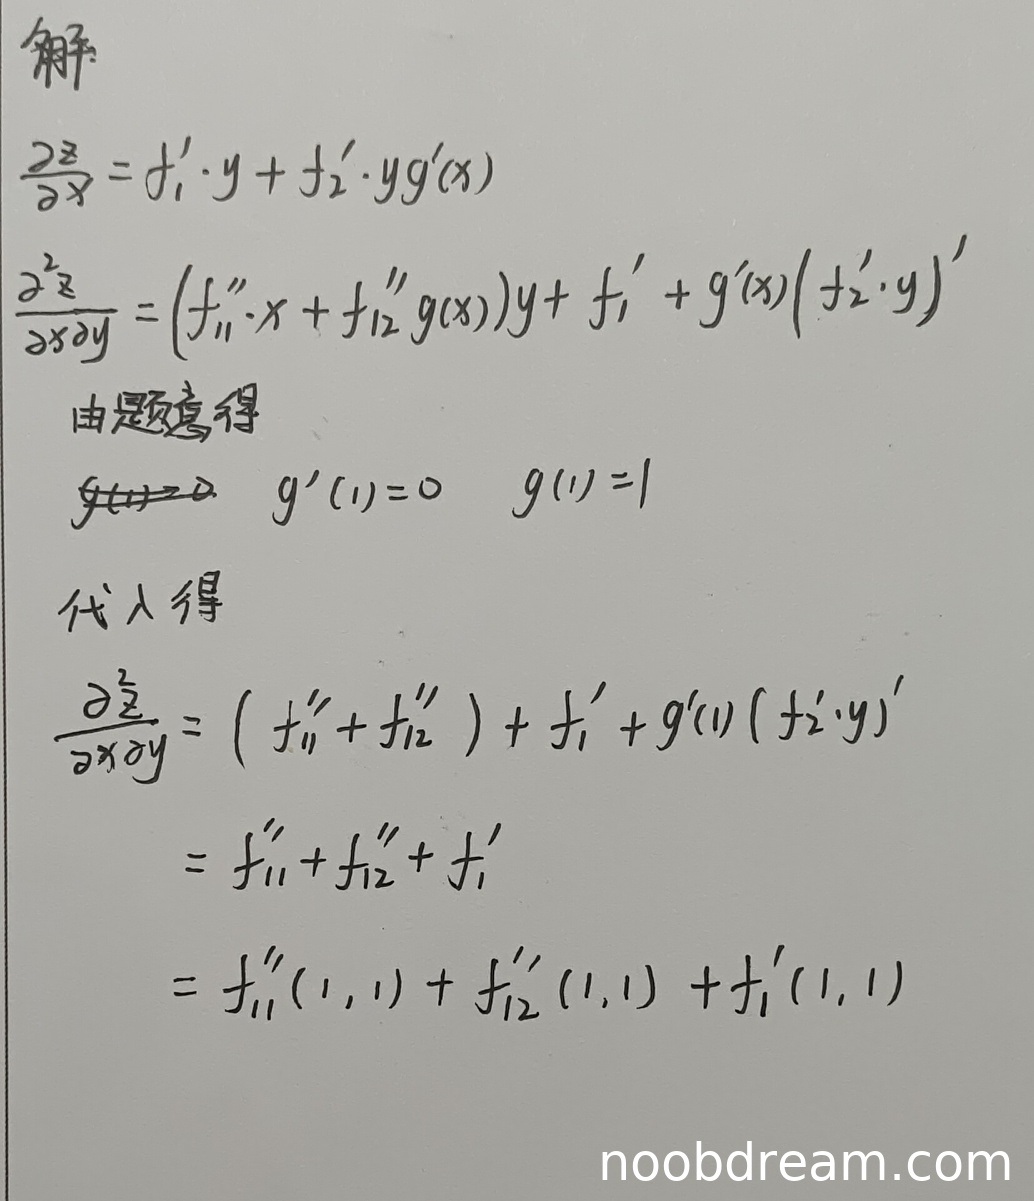 解
∂z/∂x = f₁′·y + f₂′·yg′(x)
∂²z/∂x∂y = (f₁₁″·x + f₁₂″g(x))y + f₁′ + g′(x)(f₂′·y)′
由题意得
g′(1)=0 g(1)=1
代入得
∂²z/∂x∂y = (f₁₁″+f₁₂″) + f₁′ + g′(1)(f₂′·y)′
= f₁₁″+f₁₂″+f₁′
= f₁₁″(1,1) + f₁₂″(1,1) + f₁′(1,1)
noobdream.com